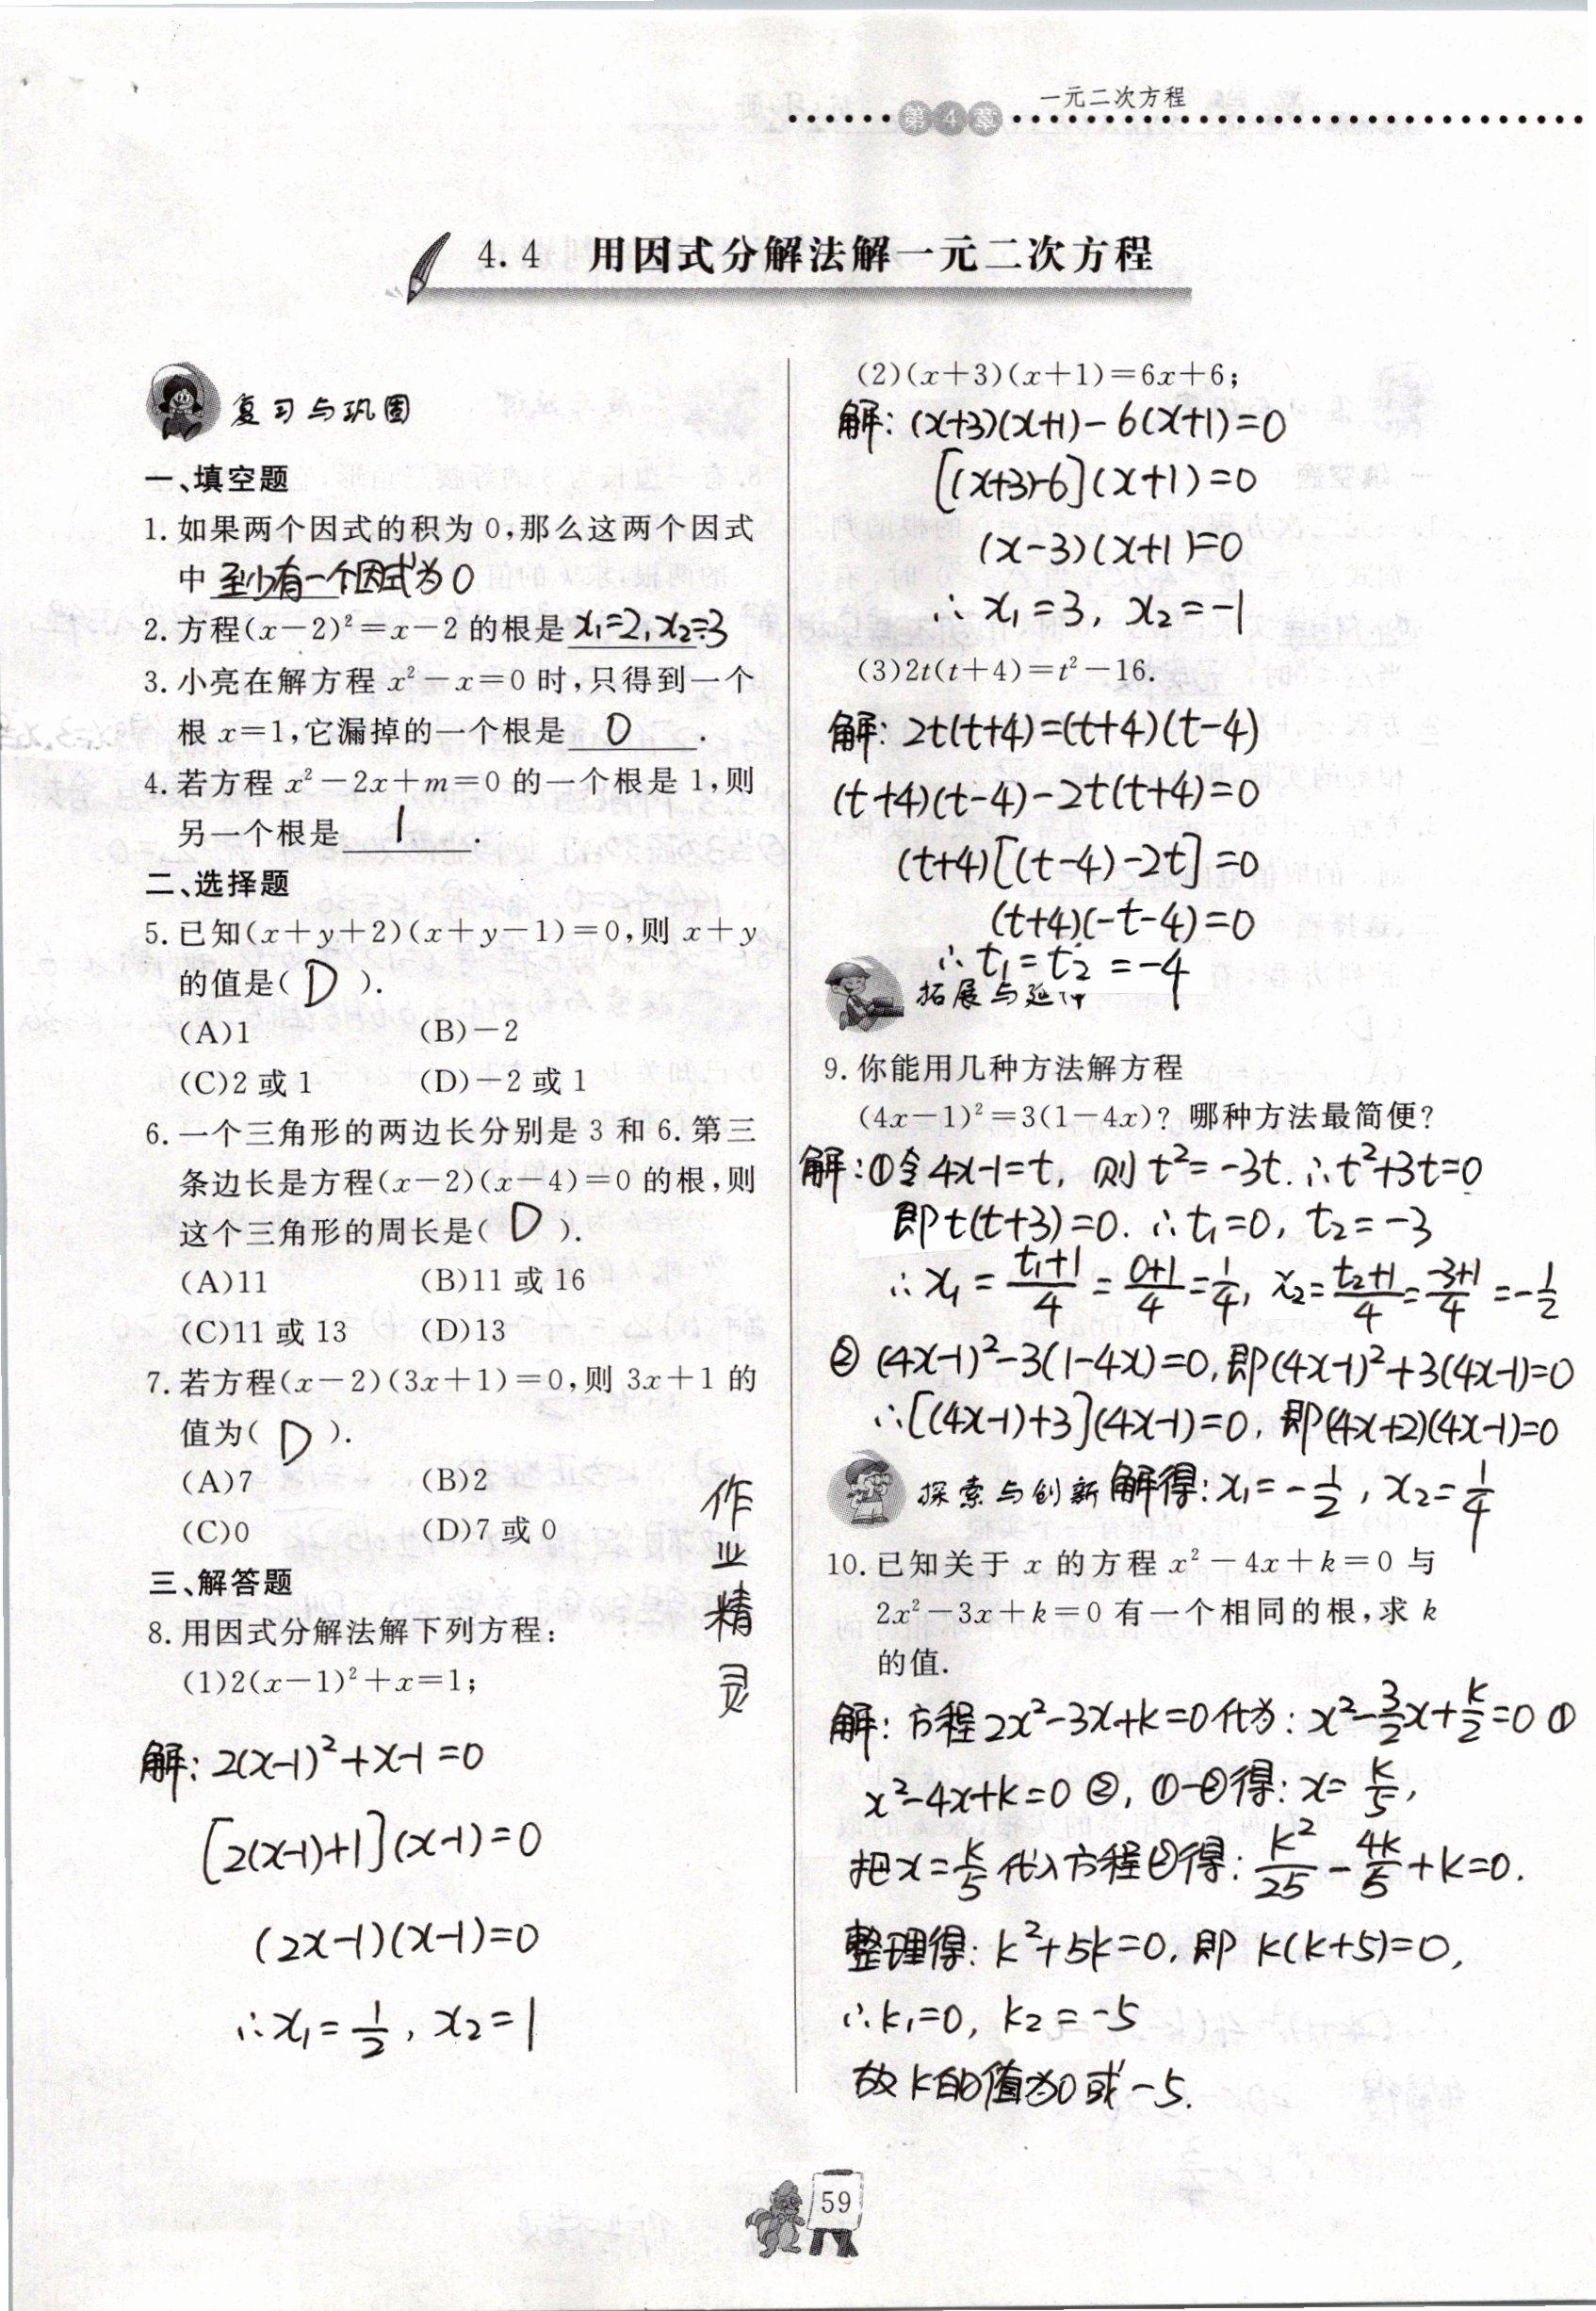 一元二次方程
第4章
4.4 用因式分解法解一元二次方程
复习与巩固
一、填空题
1. 如果两个因式的积为 0,那么这两个因式
中 至少有一个因式为0
2. 方程(x-2)²=x-2 的根是 x₁=2, x₂=3
3. 小亮在解方程 x²-x=0 时,只得到一个
根 x=1,它漏掉的一个根是 0 .
4. 若方程 x²-2x+m=0 的一个根是 1,则
另一个根是 1 .
二、选择题
5. 已知(x+y+2)(x+y-1)=0,则 x+y
的值是( D ).
(A)1 (B)-2
(C)2 或 1 (D)-2 或 1
6. 一个三角形的两边长分别是 3 和 6. 第三
条边长是方程(x-2)(x-4)=0 的根,则
这个三角形的周长是( D ).
(A)11 (B)11 或 16
(C)11 或 13 (D)13
7. 若方程(x-2)(3x+1)=0,则 3x+1 的
值为( D ).
(A)7 (B)2
(C)0 (D)7 或 0
三、解答题
8. 用因式分解法解下列方程:
(1)2(x-1)²+x=1;
解: 2(x-1)²+x-1=0
[2(x-1)+1](x-1)=0
(2x-1)(x-1)=0
∴x₁=1/2, x₂=1
作业精灵
(2)(x+3)(x+1)=6x+6;
解: (x+3)(x+1)-6(x+1)=0
[(x+3)-6](x+1)=0
(x-3)(x+1)=0
∴ x₁=3, x₂=-1
(3)2t(t+4)=t²-16.
解: 2t(t+4)=(t+4)(t-4)
(t+4)(t-4)-2t(t+4)=0
(t+4)[(t-4)-2t]=0
(t+4)(-t-4)=0
∴ t₁=t₂=-4
拓展与延伸
9. 你能用几种方法解方程
(4x-1)²=3(1-4x)? 哪种方法最简便?
解:①令4x-1=t, 则t²=-3t. ∴t²+3t=0
即t(t+3)=0. ∴t₁=0, t₂=-3
∴x₁=(t₁+1)/4=(0+1)/4=1/4, x₂=(t₂+1)/4=(-3+1)/4=-1/2
② (4x-1)²-3(1-4x)=0,即(4x-1)²+3(4x-1)=0
∴[(4x-1)+3](4x-1)=0, 即(4x+2)(4x-1)=0
探索与创新 解得: x₁=-1/2, x₂=1/4
10. 已知关于 x 的方程 x²-4x+k=0 与
2x²-3x+k=0 有一个相同的根,求 k
的值.
解: 方程2x²-3x+k=0化为: x²-3/2x+k/2=0 ①
x²-4x+k=0 ②, ①-②得: x=k/5,
把x=k/5代入方程②得: k²/25-4k/5+k=0.
整理得: k²+5k=0, 即 k(k+5)=0,
∴k₁=0, k₂=-5
故k的值为0或-5.
59